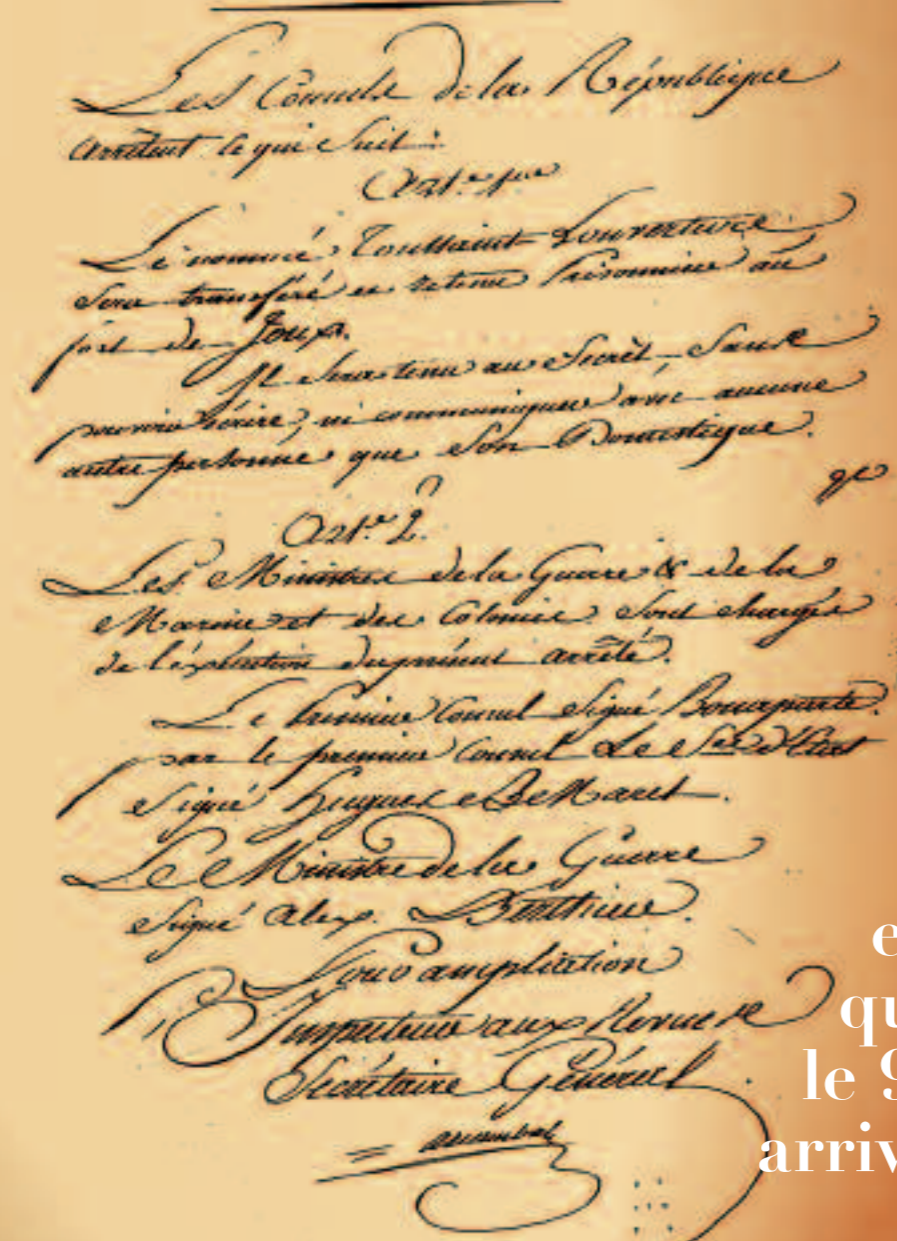 Les Consuls de la République
arrêtent ce qui suit :
Art.e 1er
Le nommé Toussaint Louverture
sera transféré et retenu Prisonnier au
fort de Joux.
Il sera tenu au Secrèt Sans
pouvoir écrire, ni communiquer avec aucune
autre personne que Son Domestique.
Art.e 2.
Les Ministres de la Guerre & de la
Marine et des Colonies Sont chargés
de l'éxécution du présent arrêté.
Le Premier Consul Signé Bonaparte.
par le premier Consul Le S.re d'Etat
Signé Hugues B. Maret.
Le Ministre de la Guerre
Signé Alex. Berthier.
Pour ampliation
L'Inspecteur aux Revues
Secrétaire Général
e
qu
le 9
arriv